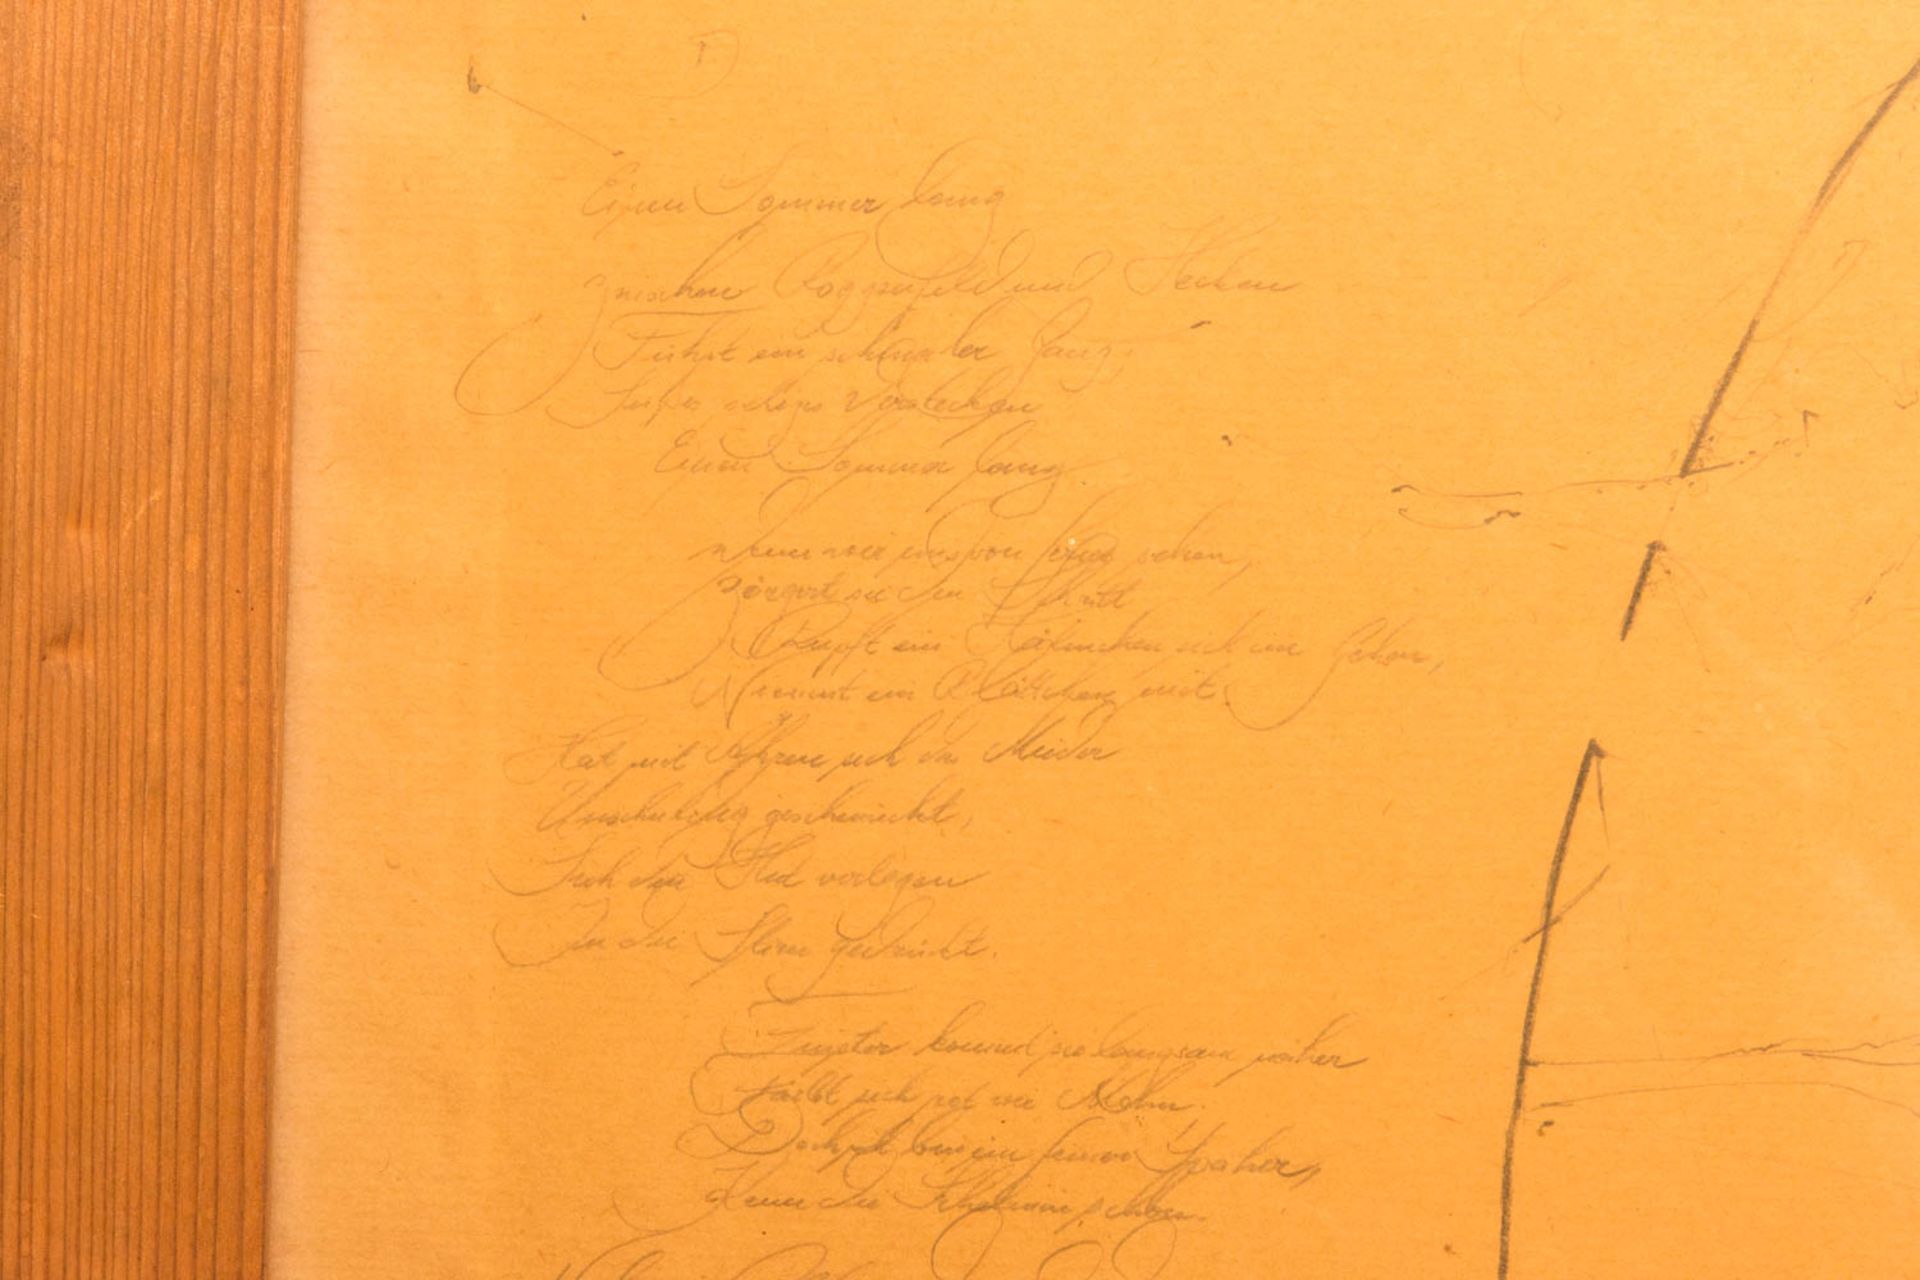 Einen Sommer lang
Zwischen Roggenfeld und Hecken
Führt ein schmaler Gang,
Süßes seliges Verstecken
Einen Sommer lang.
Wenn wir uns von ferne sehen,
Zögert sie den Schritt
Rupft ein Hälmchen sich im Gehen,
Nimmt ein Blättchen mit.
Hat mit Ähren sich das Mieder
Unschuldig geschmückt,
Sich den Hut verlegen
In die Stirn gedrückt.
Finster kommt sie langsam näher
Färbt sich rot wie Mohn.
Doch ich bin ein feiner Späher,
Kenn die Schelmin schon.